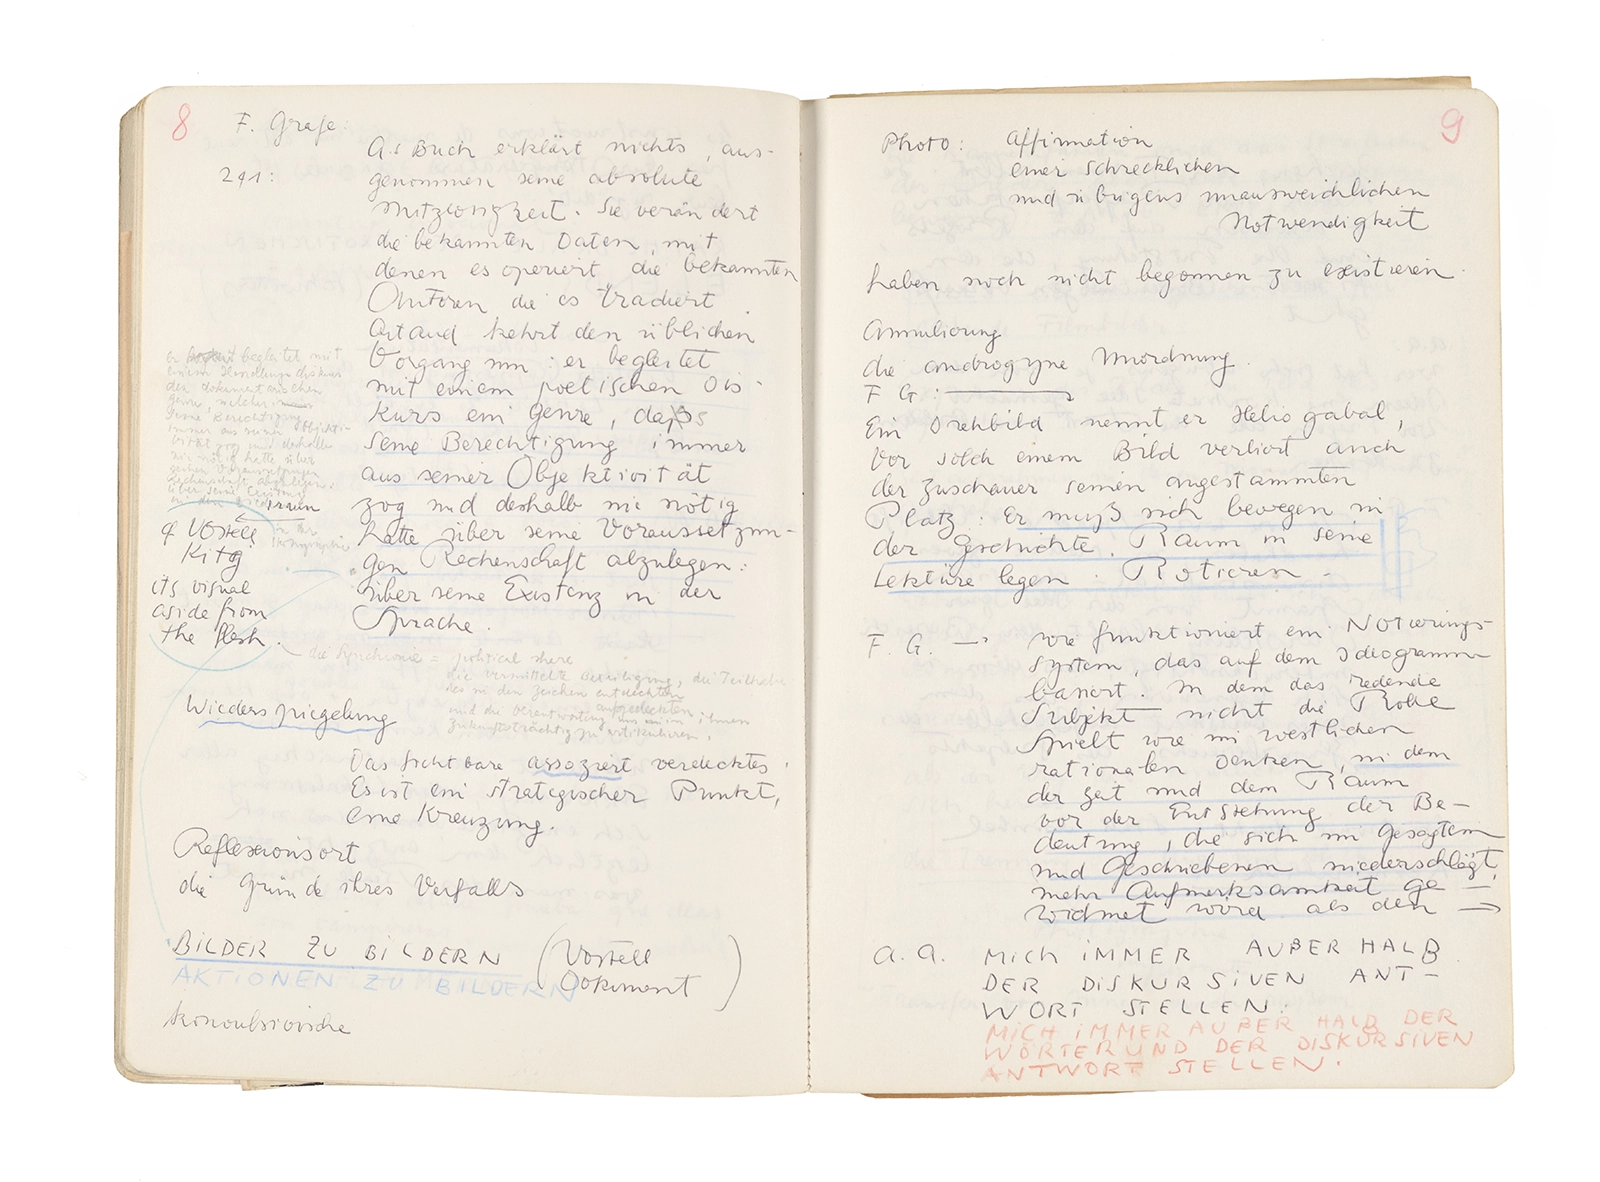 8
F. Grafe:
241:
A.s Buch erklärt nichts, aus-
genommen seine absolute
Nutzlosigkeit. Sie verändert
die bekannten Daten, mit
denen es operiert, die bekannten
Autoren die es tradiert
Artaud kehrt den üblichen
Vorgang um: er begleitet
mit einem poetischen Dis-
kurs ein Genre, das
seine Berechtigung immer
aus seiner Objektivität
zog und deshalb nie nötig
hatte über seine Voraussetzun-
gen Rechenschaft abzulegen:
über seine Existenz in der
Sprache.
er begleitet mit
einem
den dokumentarischen
Genre, welcher
seine Berechtigung
immer aus seiner Objekti-
vität zog und deshalb
nie nötig hatte über
seine Voraussetzungen
Rechenschaft abzulegen:
über seine Existenz
in den
raum
in der
Ikonographie
Vostell
Kitg
its visual
aside from
the flesh.
die Synchronie = political share
die vermittelte Beteiligung, die Teilhabe
des in den Zeichen entdeckten
aufgedeckten
und die Verantwortung, um in ihnen
zukunftsträchtig zu artikulieren.
Wiederspiegelung
Das sichtbare assoziert verdecktes.
Es ist ein strategischer Punkt,
eine Kreuzung.
Reflexionsort
die Gründe ihres Verfalls
BILDER ZU BILDERN (Vostell
Dokument)
AKTIONEN ZU BILDERN
konvulsivische
9
Photo: Affirmation
einer schrecklichen
und übrigens unausweichlichen
Notwendigkeit
haben noch nicht begonnen zu existieren.
Annulierung
die androgyne Unordnung.
F G:
Ein Drehbild nennt er Heliogabal,
Vor solch einem Bild verliert auch
der Zuschauer seinen angestammten
Platz: Er muß sich bewegen in
der Geschichte. Raum in seine
Lektüre legen. Rotieren -
F. G. → wie funktioniert ein Notierungs-
system, das auf dem Idiogramm
basiert. In dem das redende
Subjekt nicht die Rolle
spielt wie im westlichen
rationalen Denken, in dem
der Zeit und dem Raum
vor der Entstehung der Be-
deutung, die sich im Gesagten
und Geschriebenen niederschlägt,
mehr Aufmerksamkeit ge-
widmet wird als den →
A. A. MICH IMMER AUßERHALB
DER DISKURSIVEN ANT-
WORT STELLEN:
MICH IMMER AUßERHALB DER
WÖRTER UND DER DISKURSIVEN
ANTWORT STELLEN.